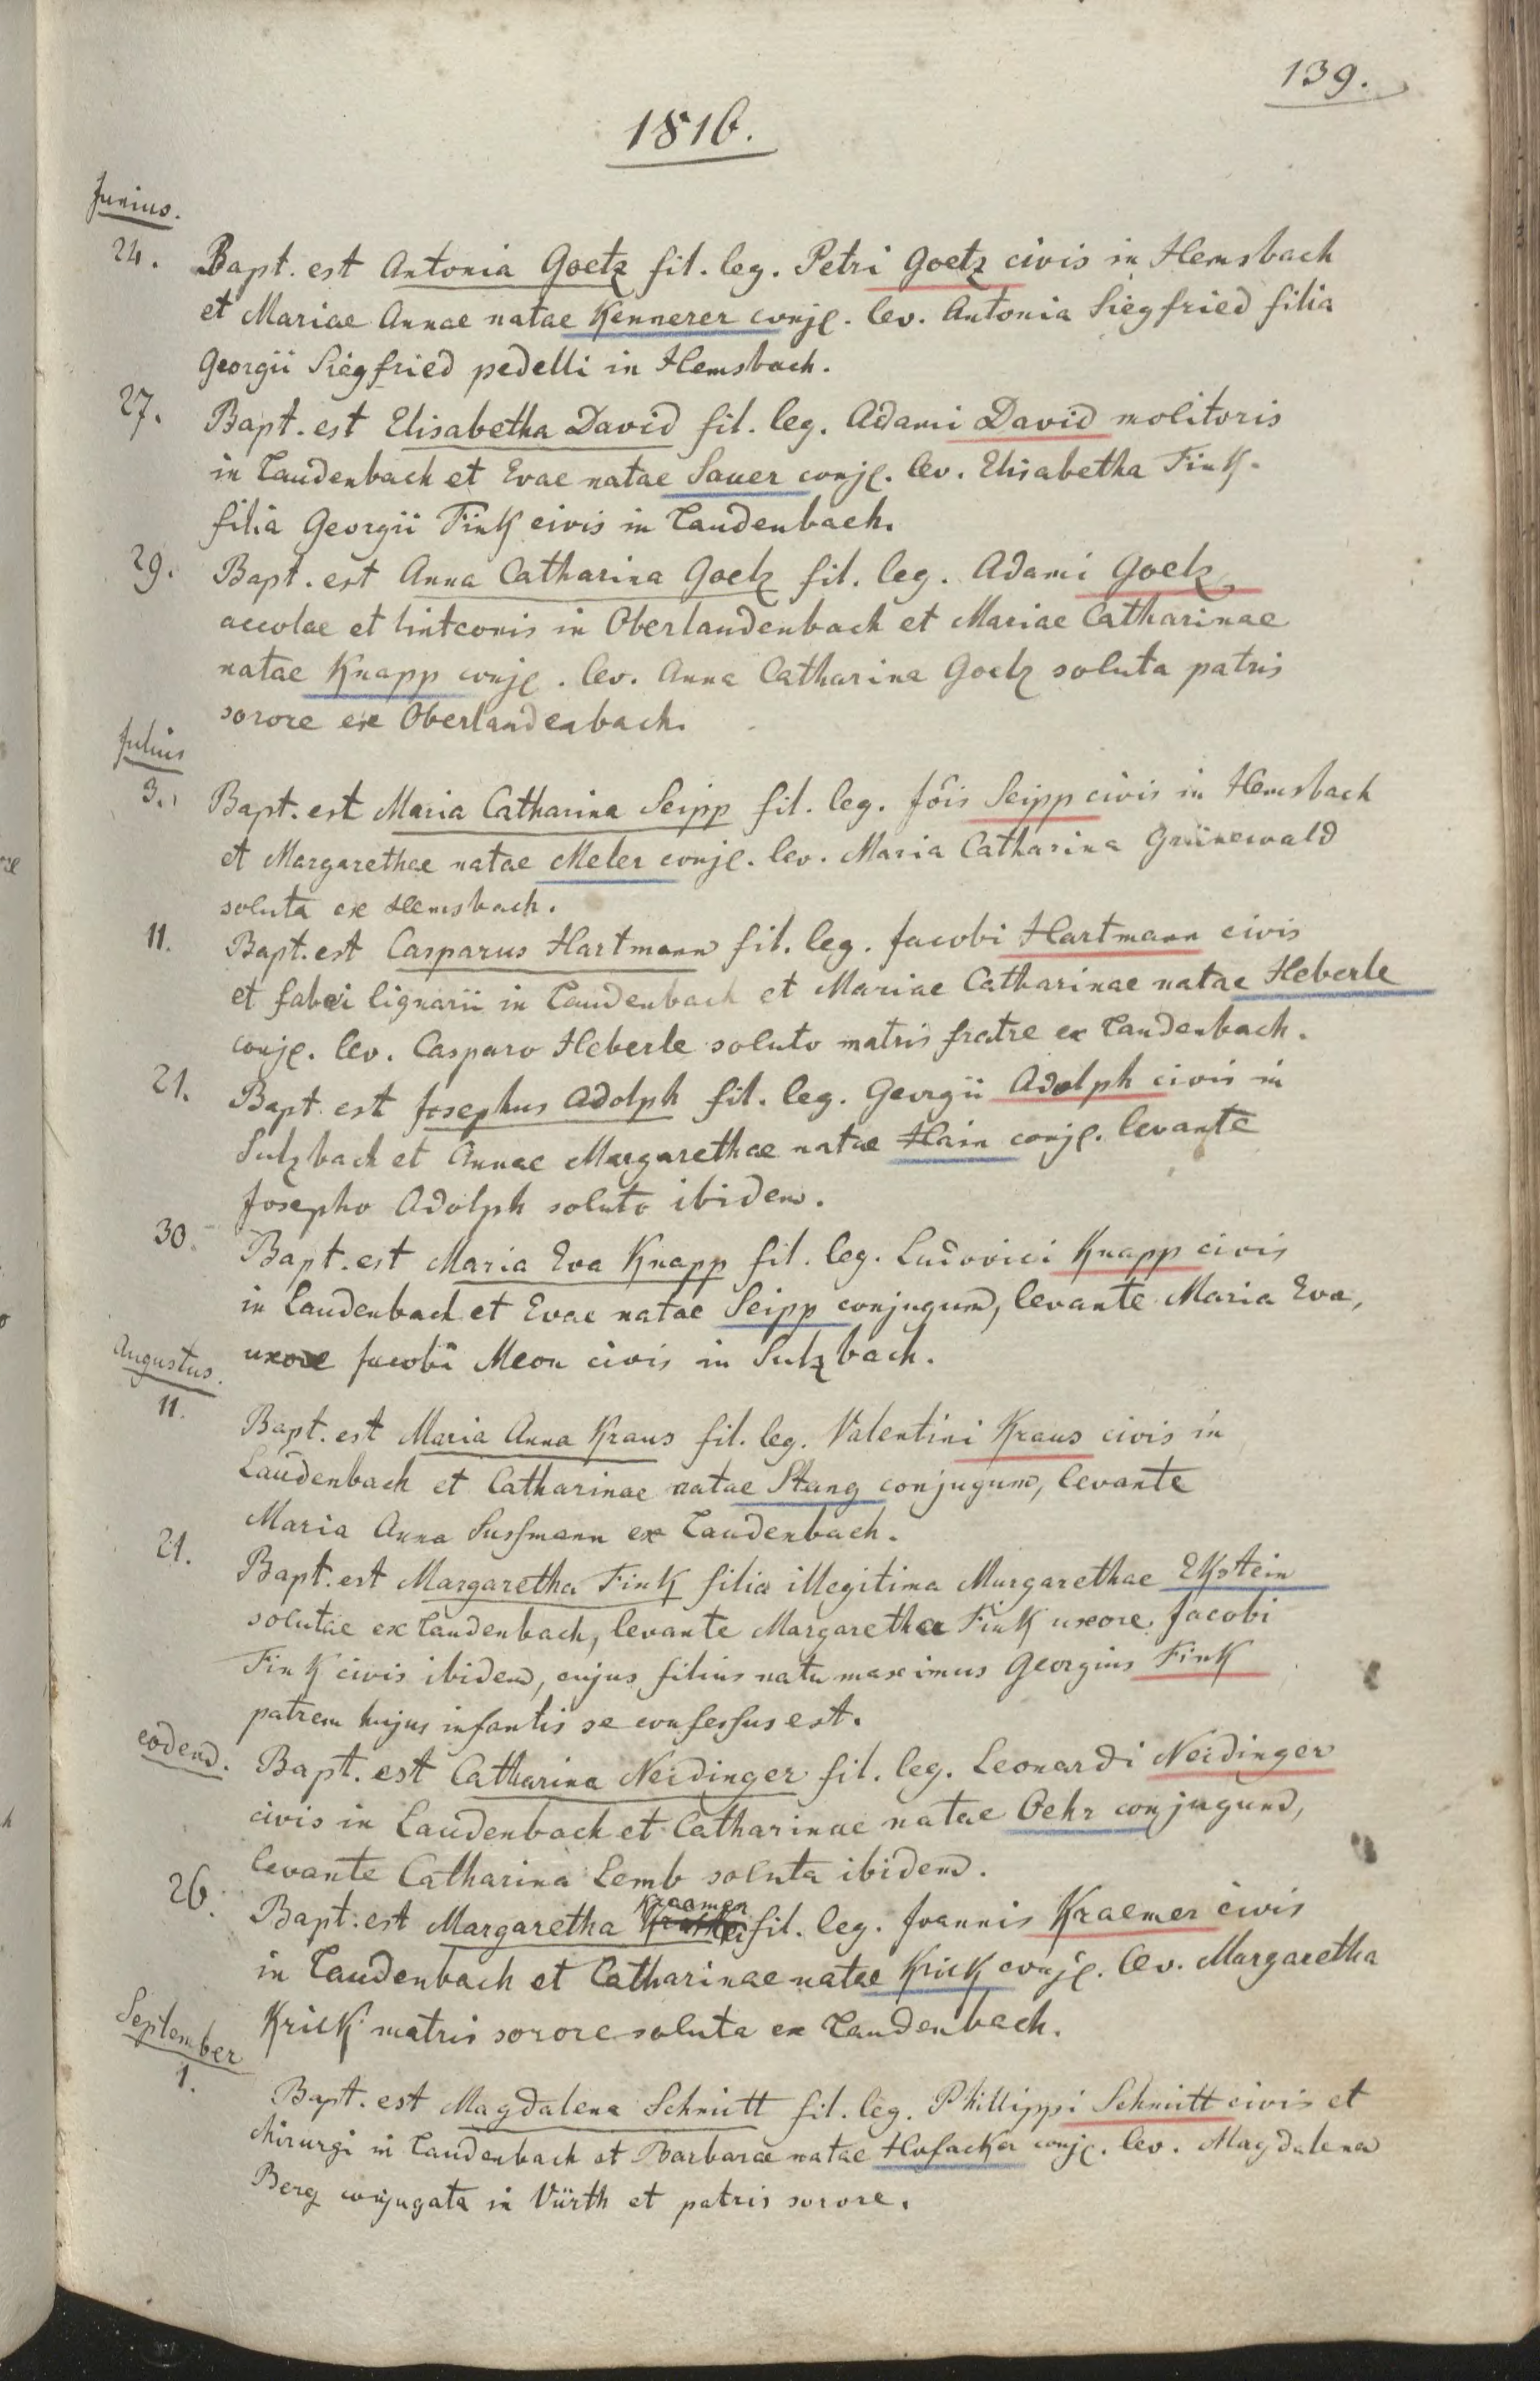 139.
1816.
Junius.
24. Bapt. est Antonia Goetz fil. leg. Petri Goetz civis in Hemsbach
et Mariae Annae natae Kennerer conjg. lev. Antonia Siegfried filia
Georgii Siegfried pedelli in Hemsbach.
27. Bapt. est Elisabetha David fil. leg. Adami David molitoris
in Laudenbach et Evae natae Sauer conjg. lev. Elisabetha Fink
filia Georgii Fink civis in Laudenbach.
29. Bapt. est Anna Catharina Goelz fil. leg. Adami Goelz
accolae et linteonis in Oberlaudenbach et Mariae Catharinae
natae Knapp conjg. lev. Anna Catharina Goelz soluta patris
sorore ex Oberlaudenbach.
Julius
3. Bapt. est Maria Catharina Seipp fil. leg. Jõis Seipp civis in Hemsbach
et Margarethae natae Meler conjg. lev. Maria Catharina Grünewald
soluta ex Hemsbach.
11. Bapt. est Casparus Hartmann fil. leg. Jacobi Hartmann civis
et fabri lignarii in Laudenbach et Mariae Catharinae natae Heberle
conjg. lev. Casparo Heberle soluto matris fratre ex Laudenbach.
21. Bapt. est Josephus Adolph fil. leg. Georgii Adolph civis in
Sulzbach et Annae Margarethae natae Hain conjg. levante
Josepho Adolph soluto ibidem.
30. Bapt. est Maria Eva Knapp fil. leg. Ludovici Knapp civis
in Laudenbach et Evae natae Seipp conjugum, levante Maria Eva,
uxore Jacobi Meon civis in Sulzbach.
Augustus.
11. Bapt. est Maria Anna Kraus fil. leg. Valentini Kraus civis in
Laudenbach et Catharinae natae Stang conjugum, levante
Maria Anna Susfmann ex Laudenbach.
21. Bapt. est Margaretha Fink filia illegitima Margarethae Ekstein
solutae ex Laudenbach, levante Margaretha Fink uxore Jacobi
Fink civis ibidem, cujus filius natu maximus Georgius Fink
patrem hujus infantis se confesfus est.
eodem. Bapt. est Catharina Neidinger fil. leg. Leonardi Neidinger
civis in Laudenbach et Catharinae natae Oehr conjugum,
levante Catharina Lemb soluta ibidem.
26. Bapt. est Margaretha Kraemer fil. leg. Joannis Kraemer civis
in Laudenbach et Catharinae natae Krick conjg. lev. Margaretha
Krick matris sorore soluta ex Laudenbach.
September
1. Bapt. est Magdalena Schmitt fil. leg. Phillippi Schmitt civis et
chirurgi in Laudenbach et Barbarae natae Hofacker conjg. lev. Magdalena
Berg conjugata in Vürth et patris sorore.